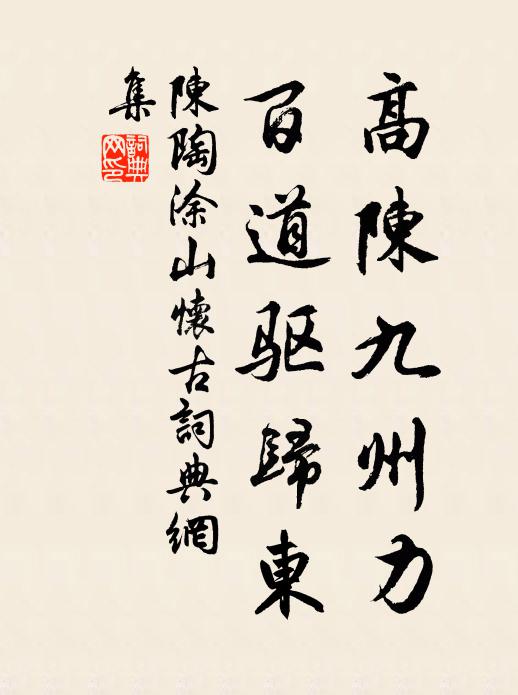 高陳九州力
百道驱歸東
陳陶涂山懷古詞典網
集
詞典網印